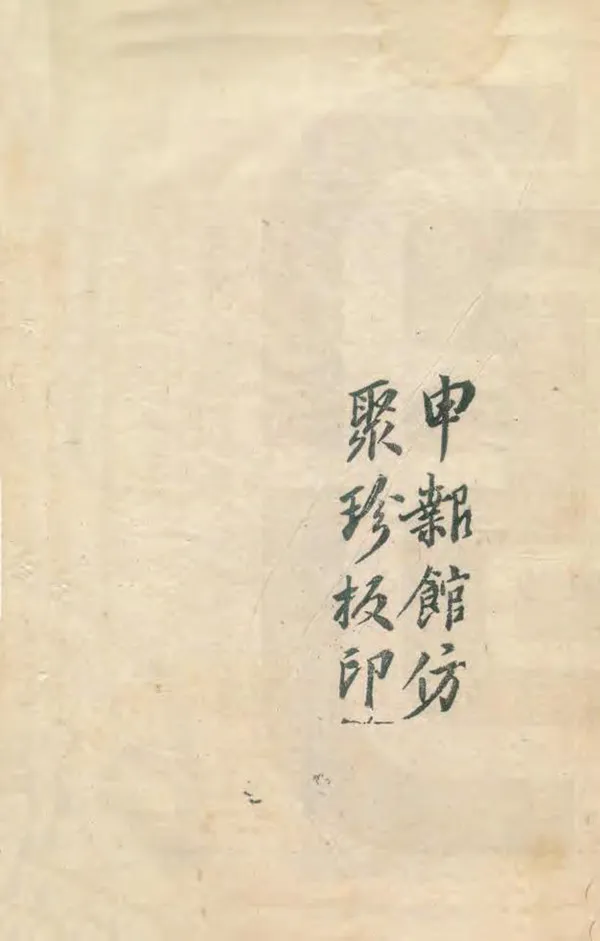 申報館仿
聚珍板印